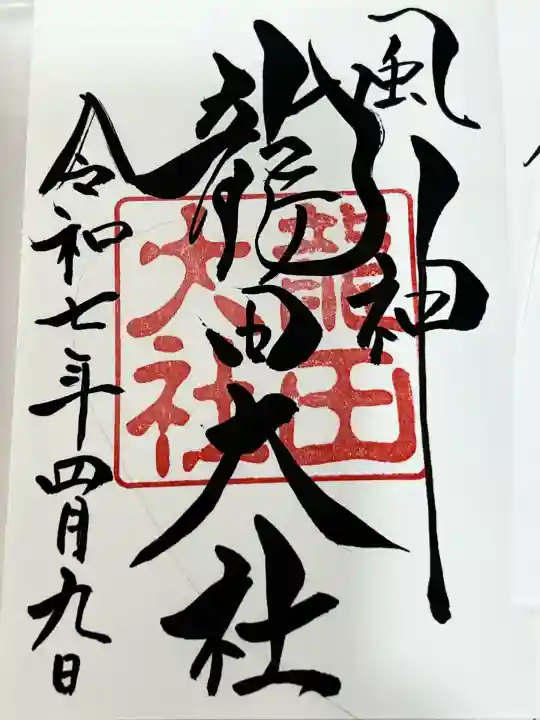 風神
龍田大社
龍田
大社
令和七年四月九日